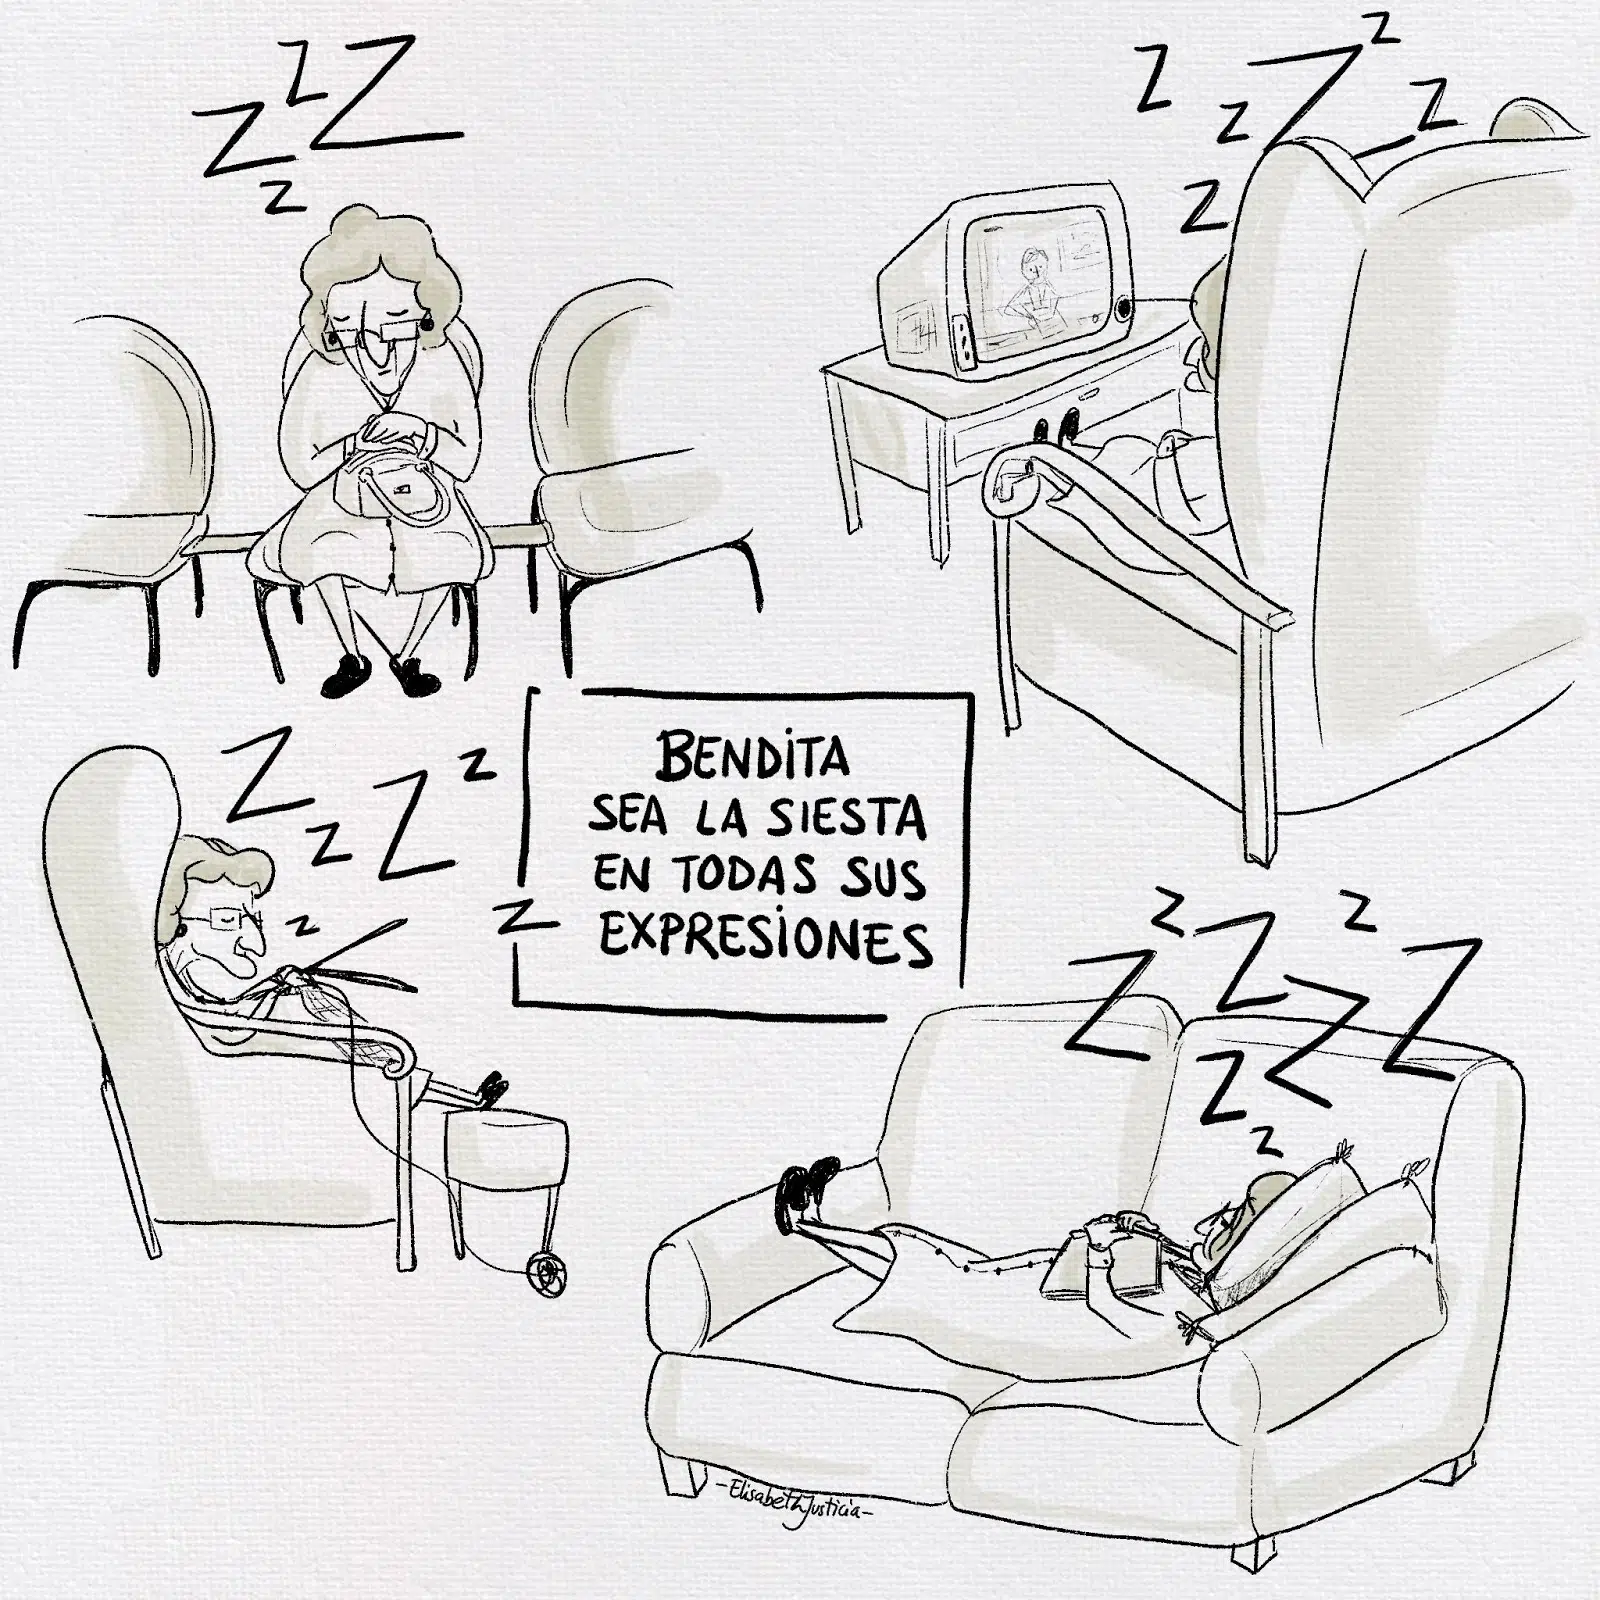 Z Z Z
Z
Z Z Z Z Z
Z
Z Z Z Z
Z
BENDITA
SEA LA SIESTA
EN TODAS SUS
EXPRESIONES
Z
Z Z Z Z Z Z
Z Z
-Elisabeth Justicia-